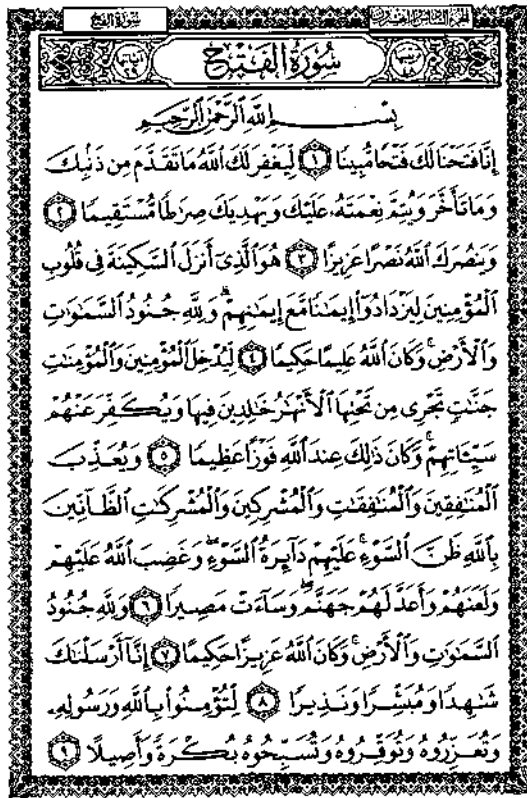 سُورَةُ الفَتْحِ
الجزء السادس والعشرون
سُورَةُ الفَتْحِ
بِسْمِ اللَّهِ الرَّحْمَٰنِ الرَّحِيمِ
إِنَّا فَتَحْنَا لَكَ فَتْحًا مُّبِينًا ١ لِّيَغْفِرَ لَكَ اللَّهُ مَا تَقَدَّمَ مِن ذَنۢبِكَ
وَمَا تَأَخَّرَ وَيُتِمَّ نِعْمَتَهُۥ عَلَيْكَ وَيَهْدِيَكَ صِرَٰطًا مُّسْتَقِيمًا ٢
وَيَنصُرَكَ اللَّهُ نَصْرًا عَزِيزًا ٣ هُوَ ٱلَّذِىٓ أَنزَلَ ٱلسَّكِينَةَ فِى قُلُوبِ
ٱلْمُؤْمِنِينَ لِيَزْدَادُوٓا۟ إِيمَٰنًا مَّعَ إِيمَٰنِهِمْ ۗ وَلِلَّهِ جُنُودُ ٱلسَّمَٰوَٰتِ
وَٱلْأَرْضِ ۚ وَكَانَ ٱللَّهُ عَلِيمًا حَكِيمًا ٤ لِّيُدْخِلَ ٱلْمُؤْمِنِينَ وَٱلْمُؤْمِنَٰتِ
جَنَّٰتٍ تَجْرِى مِن تَحْتِهَا ٱلْأَنْهَٰرُ خَٰلِدِينَ فِيهَا وَيُكَفِّرَ عَنْهُمْ
سَيِّـَٔاتِهِمْ ۚ وَكَانَ ذَٰلِكَ عِندَ ٱللَّهِ فَوْزًا عَظِيمًا ٥ وَيُعَذِّبَ
ٱلْمُنَٰفِقِينَ وَٱلْمُنَٰفِقَٰتِ وَٱلْمُشْرِكِينَ وَٱلْمُشْرِكَٰتِ ٱلظَّآنِّينَ
بِٱللَّهِ ظَنَّ ٱلسَّوْءِ ۚ عَلَيْهِمْ دَآئِرَةُ ٱلسَّوْءِ ۖ وَغَضِبَ ٱللَّهُ عَلَيْهِمْ
وَلَعَنَهُمْ وَأَعَدَّ لَهُمْ جَهَنَّمَ ۖ وَسَآءَتْ مَصِيرًا ٦ وَلِلَّهِ جُنُودُ
ٱلسَّمَٰوَٰتِ وَٱلْأَرْضِ ۚ وَكَانَ ٱللَّهُ عَزِيزًا حَكِيمًا ٧ إِنَّآ أَرْسَلْنَٰكَ
شَٰهِدًا وَمُبَشِّرًا وَنَذِيرًا ٨ لِّتُؤْمِنُوا۟ بِٱللَّهِ وَرَسُولِهِۦ
وَتُعَزِّرُوهُ وَتُوَقِّرُوهُ وَتُسَبِّحُوهُ بُكْرَةً وَأَصِيلًا ٩